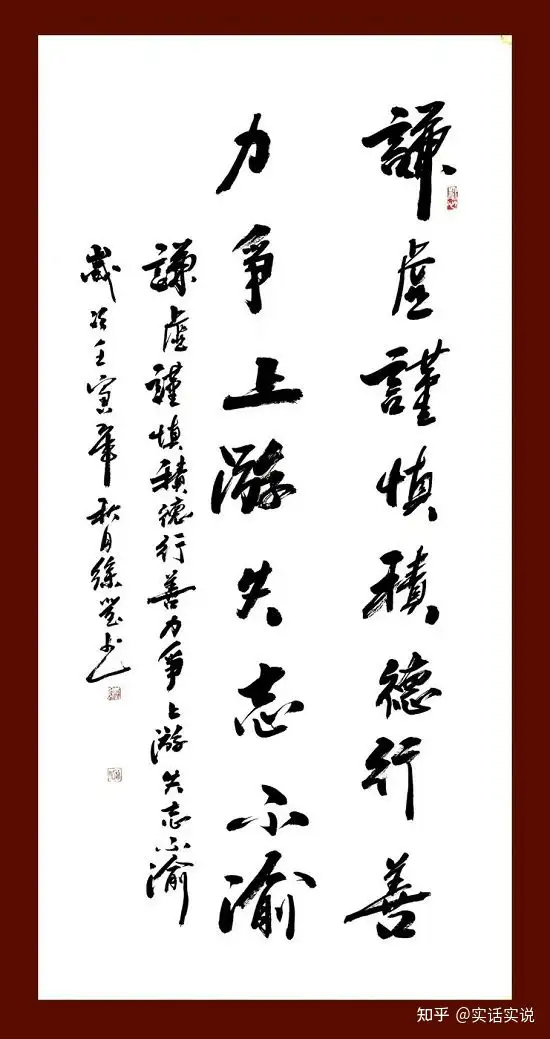 謙虛謹慎積德行善
力爭上游失志不渝
謙虛謹慎積德行善力爭上游失志不渝
歲次壬寅年秋月徐书
知乎 @实话实说